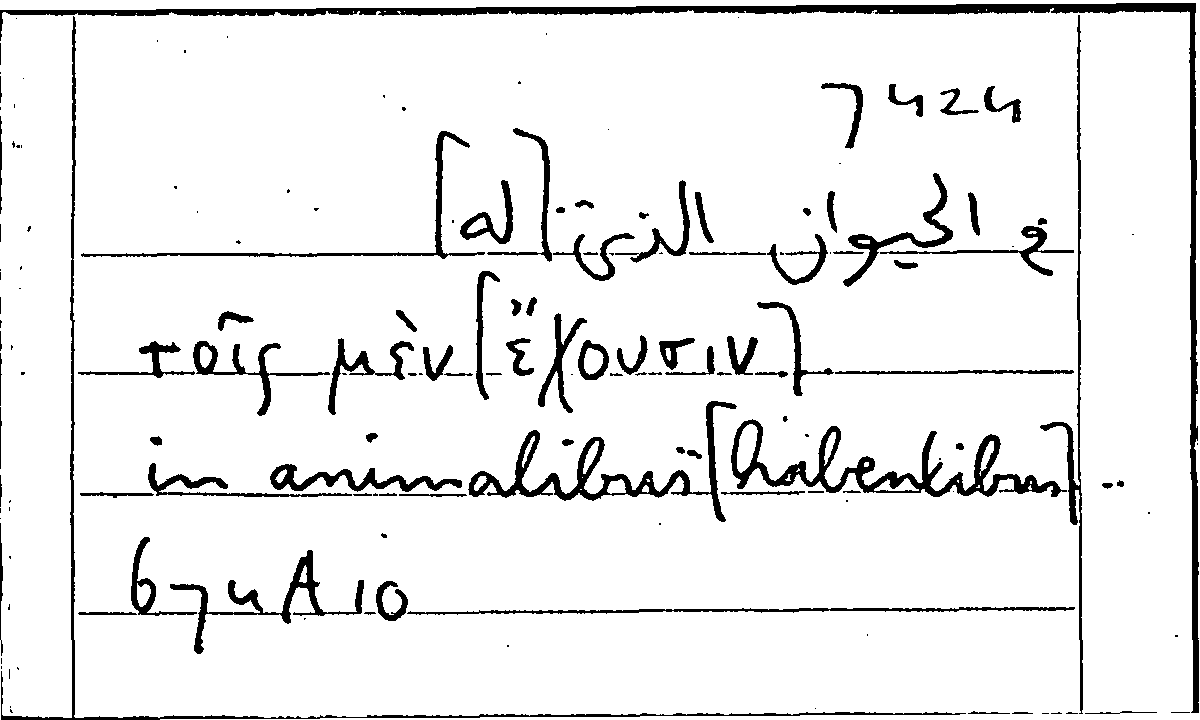 7424
في الحيوان الذي¨[له]
τοῖς μὲν [ἔχουσιν].
in animalibus¨[habentibus]..
674A10